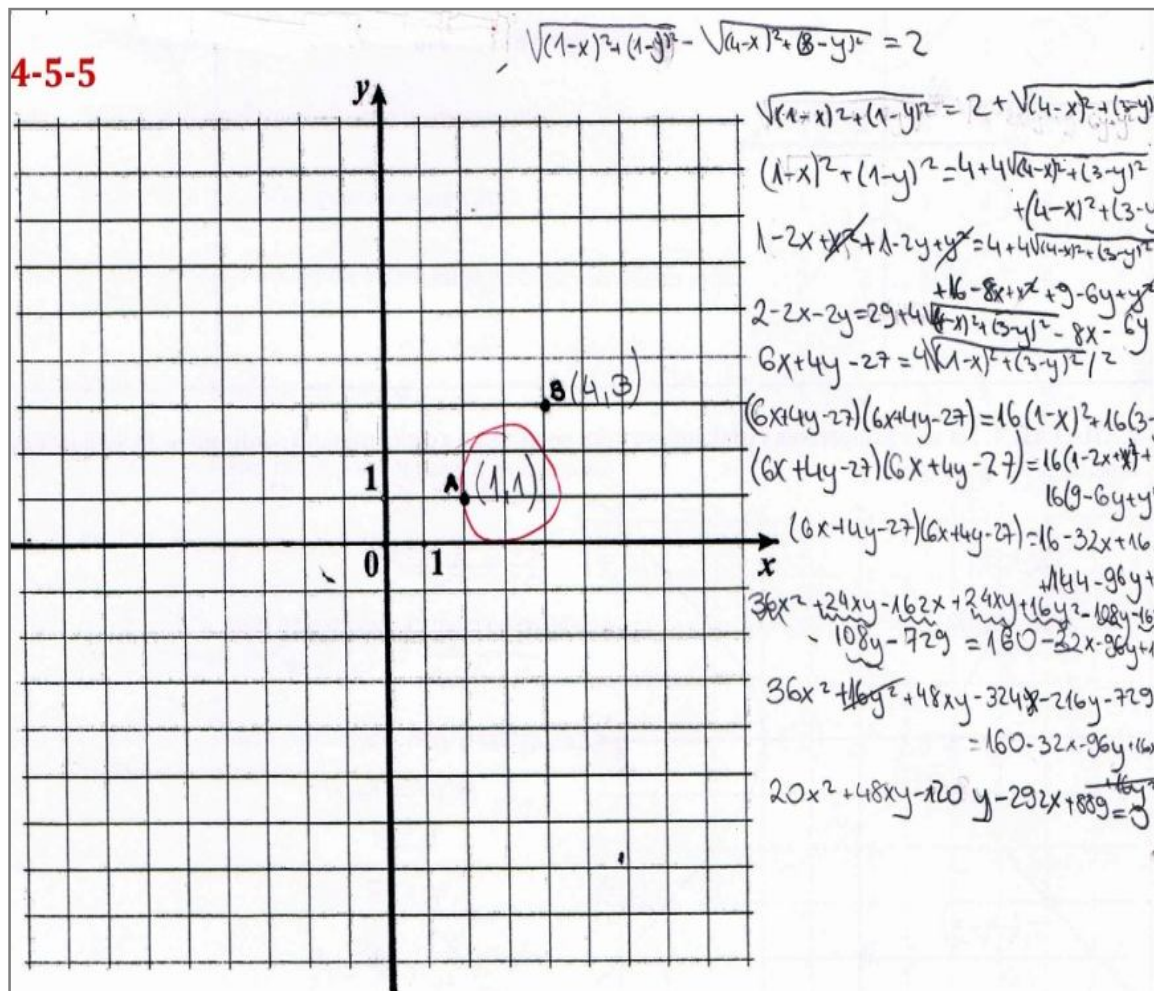 √(1-x)²+(1-y)² - √(4-x)²+(3-y)² = 2
4-5-5
y
√(1-x)²+(1-y)² = 2 + √(4-x)²+(3-y)
(1-x)²+(1-y)² = 4+4√(4-x)²+(3-y)²
+(4-x)²+(3-y
1-2x+x²+1-2y+y² = 4+4√(4-x)²+(3-y)²
+16-8x+x²+9-6y+y²
2-2x-2y=29+4√(4-x)²+(3-y)² - 8x - 6y
6x+4y-27 = 4√(1-x)²+(3-y)² /²
B(4,3)
(6x+4y-27)(6x+4y-27) = 16(1-x)²+16(3-
(6x+4y-27)(6x+4y-27) = 16(1-2x+x²)+
16(9-6y+y²
1
A(1,1)
(6x+4y-27)(6x+4y-27) = 16-32x+16
+144-96y+
0
1
x
36x²+24xy-162x+24xy+16y²-108y-16
-108y-729 = 160-32x-96y+1
36x²+16y²+48xy-324x-216y-729
=160-32x-96y+16x
+16y²
20x²+48xy-120y-292x+889=